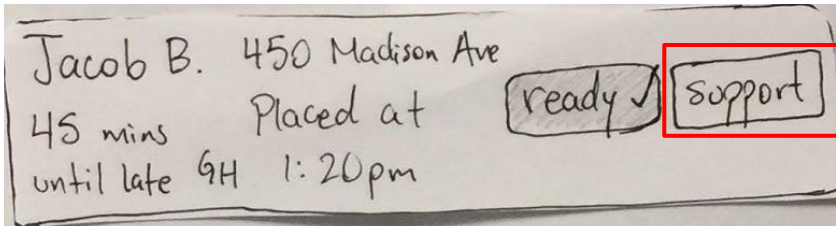 Jacob B. 450 Madison Ave
45 mins until late GH
Placed at 1:20pm
ready ✓
support